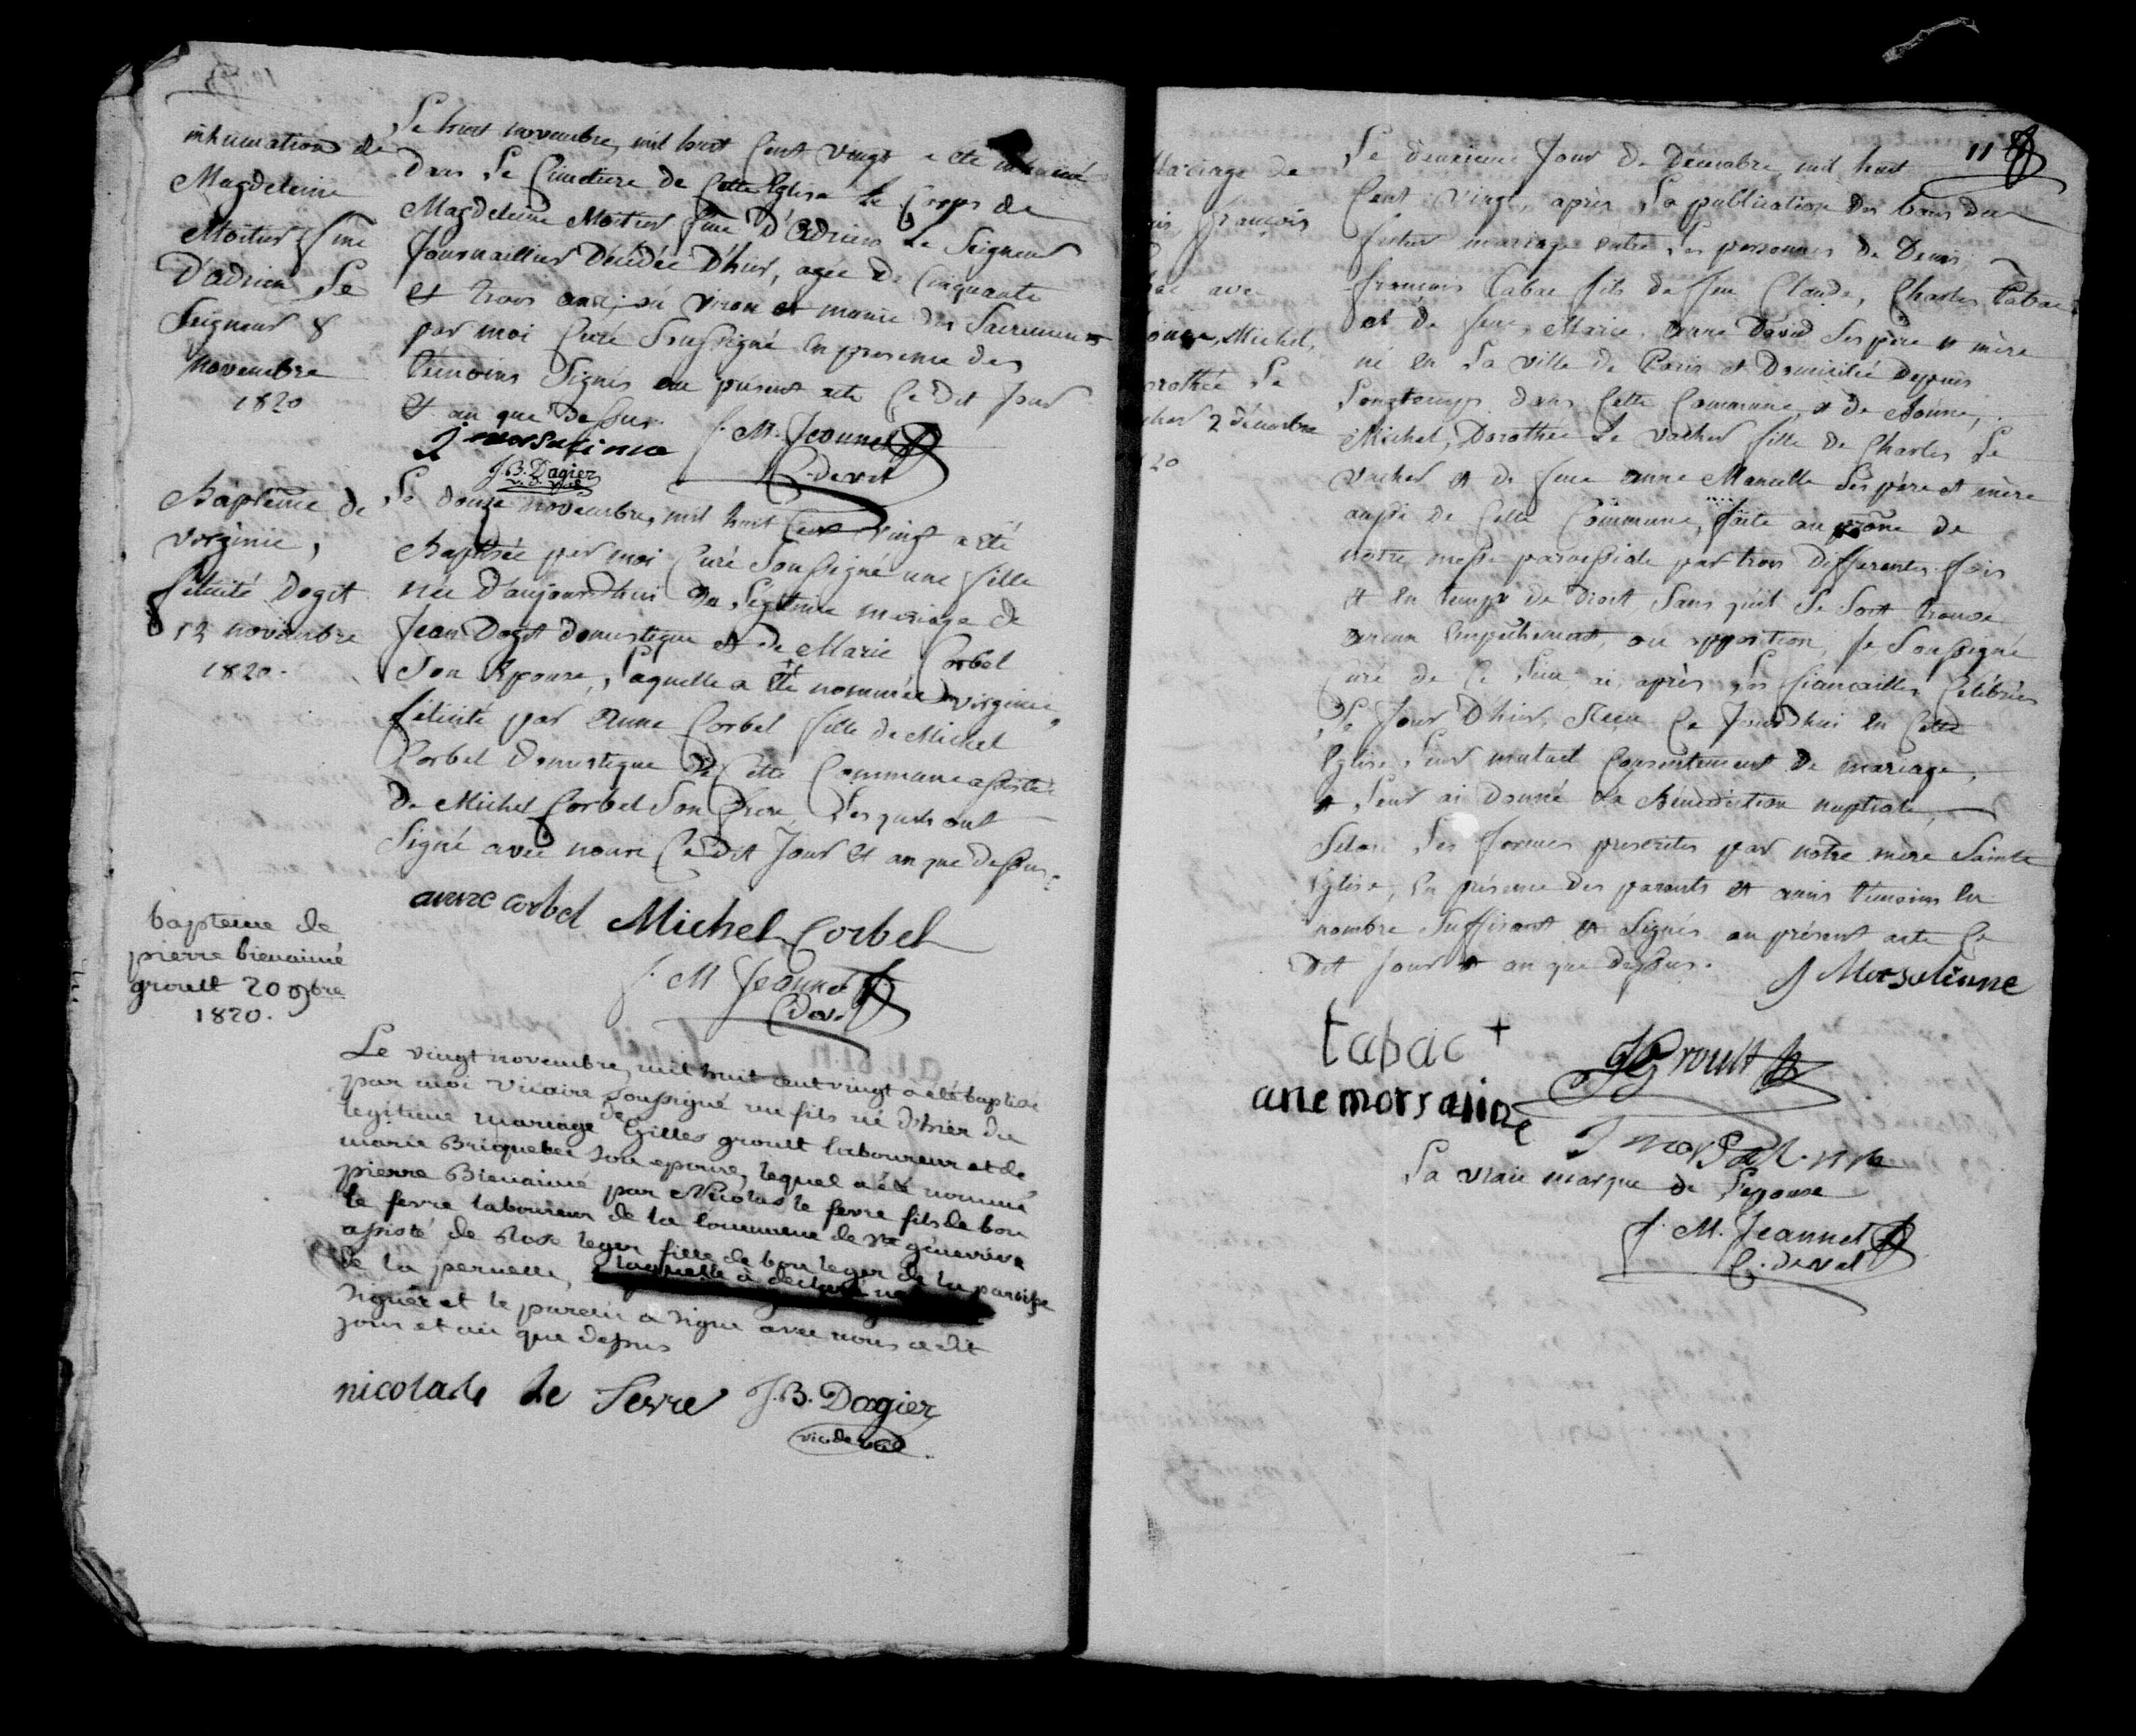 inhumation de
Magdeleine
Mortier f.me
D'adrien Le
Seigneur 8
novembre
1820
Le huit novembre, mil huit Cent vingt a été inhumé
Dans Le Cimetiere de Cette Eglise Le Corps de
Magdeleine Mortier f.me D'Adrien Le Seigneur
Journaillier Décédée D'hier, agée de Cinquante
et trois ans; ou viron et munie des Sacremens
par moi Curé Soussigné en presence des
temoins Signés au présent acte Ce Dit Jour
et an que Dessus.
J morsaline
f. M. Jeannet
C. de val
J.B. Dagier
v. d. val
Baptême de
virginie,
félicité Dogit
12 novembre
1820.
Le douze novembre, mil huit Cent vingt a été
Baptisée par moi Curé Soussigné une fille
née D'aujourd'hui du Légitime mariage de
Jean Dogit domestique et de Marie Corbel
Son Epouse, Laquelle a été nommée virginie,
félicité par Anne Corbel fille de Michel
Corbel Domestique de Cette Commune assistée
de Michel Corbel Son frere, Lesquels ont
Signé avec nous Ce dit Jour et an que dessus.
anne corbel Michel Corbel
f. M Jeannet
C de val
bapteme de
pierre bienaimé
groult 20 9bre
1820.
Le vingt novembre, mil huit cent vingt a été baptisé
par moi vicaire soussigné un fils né d'hier du
legitime mariage de Gilles groult laboureur et de
marie Briquebec son epouse, lequel a été nommé
pierre Bienaimé par Nicolas le fevre fils de bon
le fevre laboureur de la commune de ste génevieve
assisté de Rose leger fille de bon leger de la paroisse
de la pernelle, laquelle a déclaré ne
signer et le parein a signé avec nous ce dit
jour et an que dessus
nicolas le fevre J.B. Dagier
vic de val
11
Mariage de
François
avec
Michel,
Dorothée Le
2 décembre
20
Le deuxieme Jour de Décembre, mil huit
Cent vingt, après La publication des bans du
futur mariage entre Les personnes de Denis
francois tabac fils de feu Claude, Charles tabac
et de feue Marie Anne David Ses père et mère
né en La ville de Paris et Domicilié depuis
Longtemps dans Cette Commune, et de
Michel, Dorothée Le vacher fille de Charles Le
vacher et de feue anne Marcelle Ses père et mère
aussi de Cette Commune, faite au prône de
notre messe paroissiale par trois differentes fois
et en temps de droit Sans qu'il se soit trouvé
aucun Empêchement, ou opposition, Je Soussigné
Curé de Ce Lieu ai, après Les fiançailles Célébrées
Le Jour D'hier, Recu Ce Jourdhui en Cette
Eglise Leur mutuel Consentement de mariage,
et Leur ai donné La Bénédiction nuptiale,
Selon Les formes prescrites par notre mère Sainte
Eglise, en présence des parents et amis témoins en
nombre Suffisant et Signés au présent acte Ce
Dit Jour et an que dessus.
J Morsalinne
tabac +
J Groult
ane morsaline
J morsaline
La vraie marque de L'epouse
f. M. Jeannet
C. de val